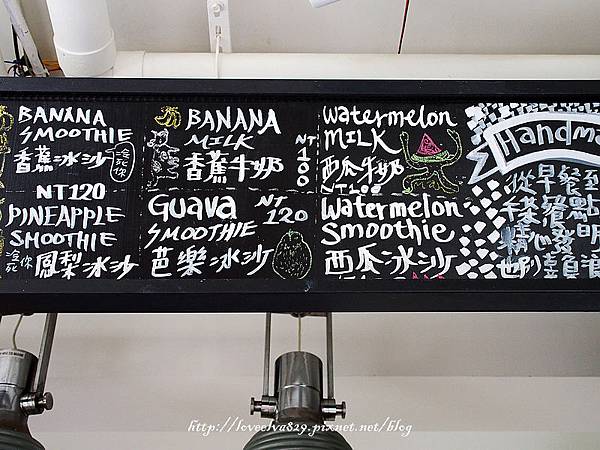 BANANA
SMOOTHIE
香蕉冰沙
NT120
PINEAPPLE
SMOOTHIE
鳳梨冰沙
BANANA
MILK
香蕉牛奶
NT
100
GUAVA
NT
120
SMOOTHIE
芭樂冰沙
Watermelon
MILK
西瓜牛奶
Watermelon
Smoothie
西瓜冰沙
Handma
從早餐到
精心發
http://loveelva829.pixnet.net/blog